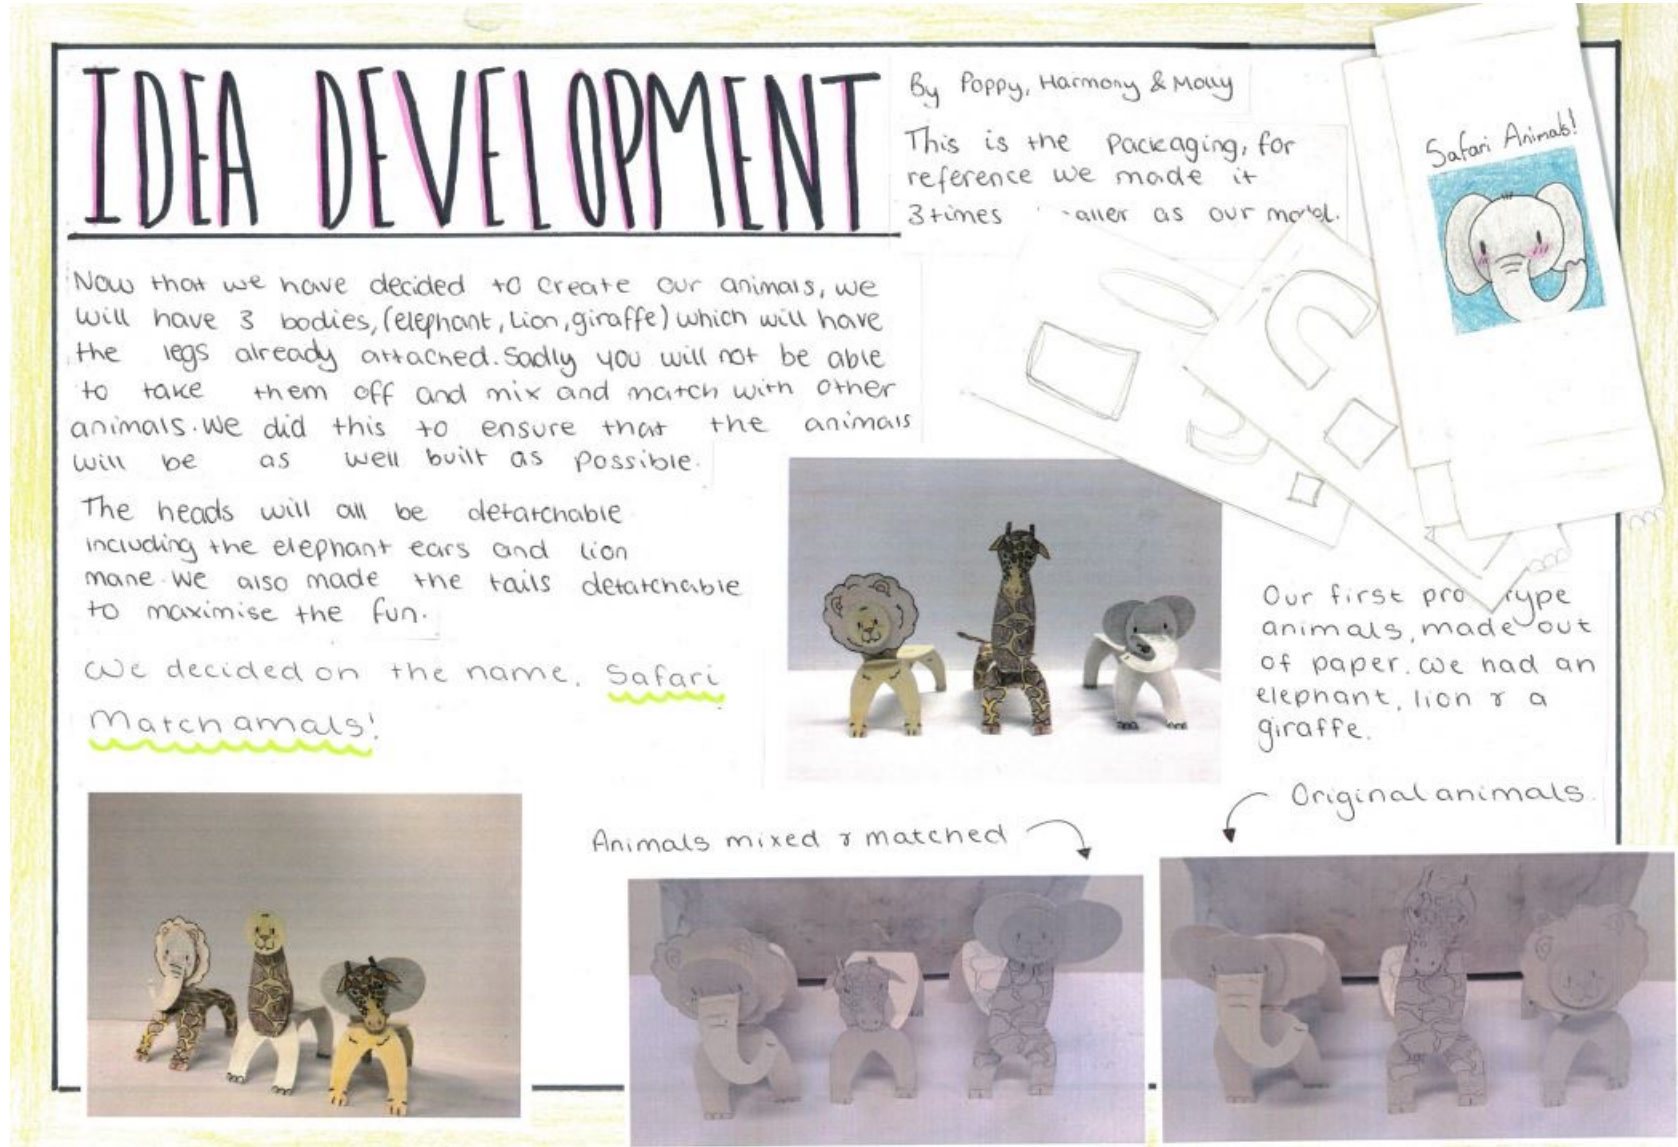 IDEA DEVELOPMENT
By Poppy, Harmony & Molly
This is the packaging, for
reference we made it
3 times as our model.
Safari Animals!
Now that we have decided to create our animals, we
will have 3 bodies, (elephant, lion, giraffe) which will have
the legs already attached. Sadly you will not be able
to take them off and mix and match with other
animals. We did this to ensure that the animals
will be as well built as possible.
The heads will all be detatchable
including the elephant ears and lion
mane. We also made the tails detatchable
to maximise the fun.
We decided on the name, Safari
Matchamals!
Our first pro ype
animals, made out
of paper. We had an
elephant, lion & a
giraffe.
Original animals.
Animals mixed & matched